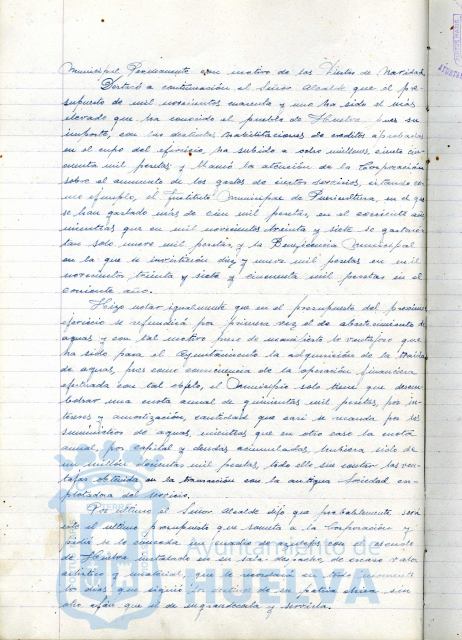 Municipal Permanente con motivo de las Fiestas de Navidad.
Destacó a continuación el Señor Alcalde que el pre-
supuesto de mil novecientos cuarenta y uno ha sido el más
elevado que ha conocido el pueblo de Huelva pues su
importe, con las distintas habilitaciones de créditos aprobadas
en el curso del ejercicio, ha subido a ocho millones, ciento cin-
cuenta mil pesetas y llamó la atención de la Corporación
sobre el aumento de los gastos de ciertos servicios, citando co-
mo ejemplo, el Instituto Municipal de Puericultura, en el que
se han gastado más de cien mil pesetas, en el corriente año
mientras que en mil novecientos treinta y siete se gastaron
tan solo nueve mil pesetas, y la Beneficencia Municipal
en la que se invirtieron diez y nueve mil pesetas en mil
novecientos treinta y siete y cincuenta mil pesetas en el
corriente año.
Hizo notar igualmente que en el presupuesto del próximo
ejercicio se refundirá por primera vez el de abastecimiento de
aguas y con tal motivo puso de manifiesto lo ventajoso que
ha sido para el Ayuntamiento la adquisición de la Traída
de aguas, pues como consecuencia de la operación financiera
efectuada con tal objeto, el Municipio solo tiene que desem-
bolsar una cuota anual de quinientas mil pesetas, por in-
tereses y amortización, cantidad que casi se recauda por el
suministro de aguas, mientras que en otro caso la cuota
anual, por capital y deudas acumuladas, hubiera sido de
un millón doscientas mil pesetas, todo ello sin contar las ven-
tajas obtenidas en la transacción con la antigua Sociedad ex-
plotadora del servicio.
Por último el Señor Alcalde dijo que probablemente será
este el último presupuesto que someta a la Corporación y
pidió se le conceda un cuadro de azulejos con el escudo
de Huelva instalado en su sala despacho, de escaso valor
artístico y material, que le recordará en todo momento
los días que siguió los destinos de su patria chica sin
otro afán que el de engrandecerla y servirla.
Ayuntamiento de
HUELVA